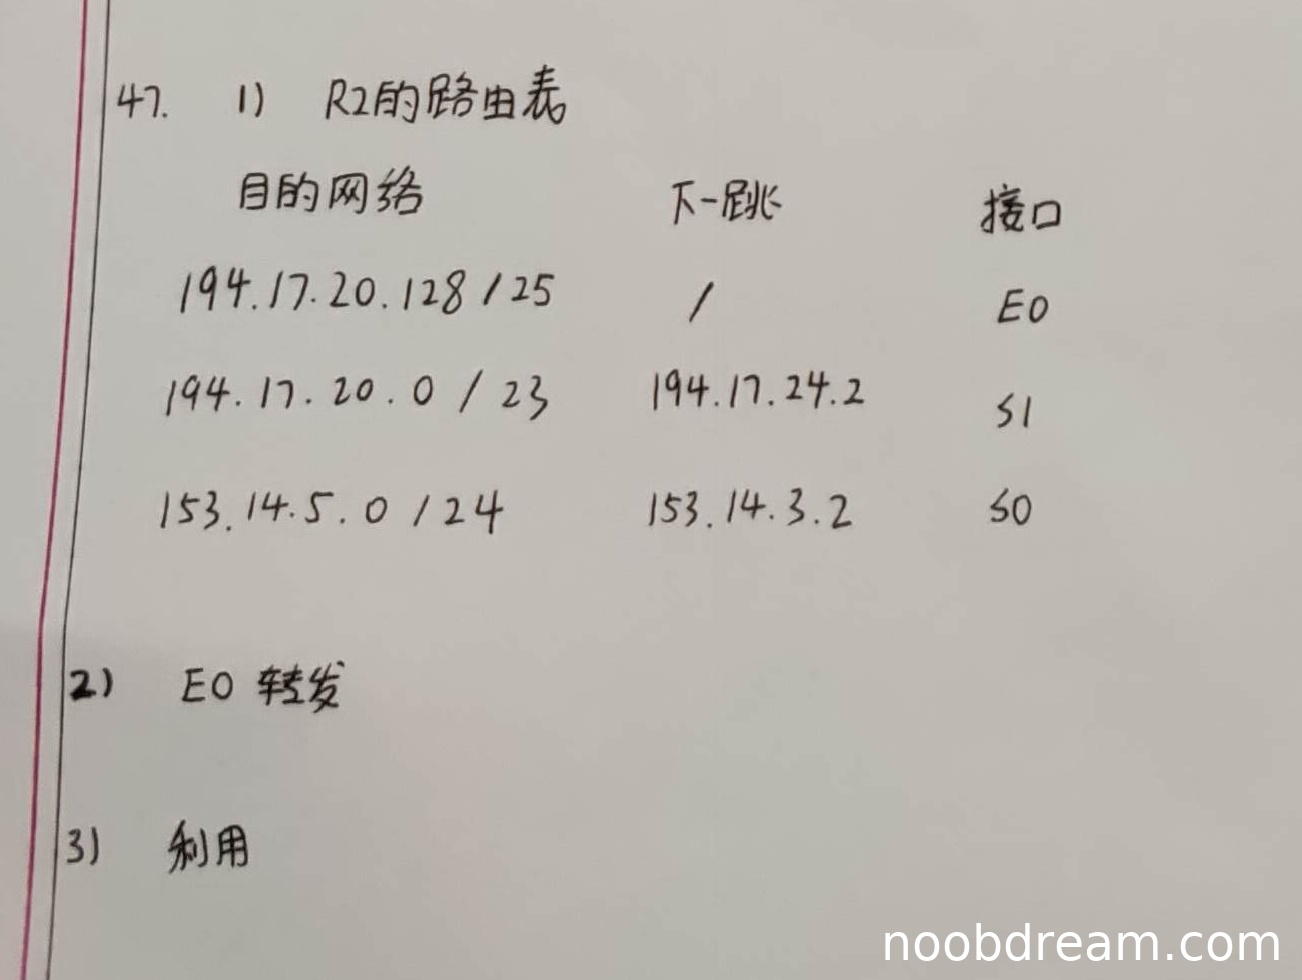 47. 1) R2的路由表
目的网络 下一跳 接口
194.17.20.128/25 / E0
194.17.20.0/23 194.17.24.2 S1
153.14.5.0/24 153.14.3.2 S0
2) E0 转发
3) 利用
noobdream.com